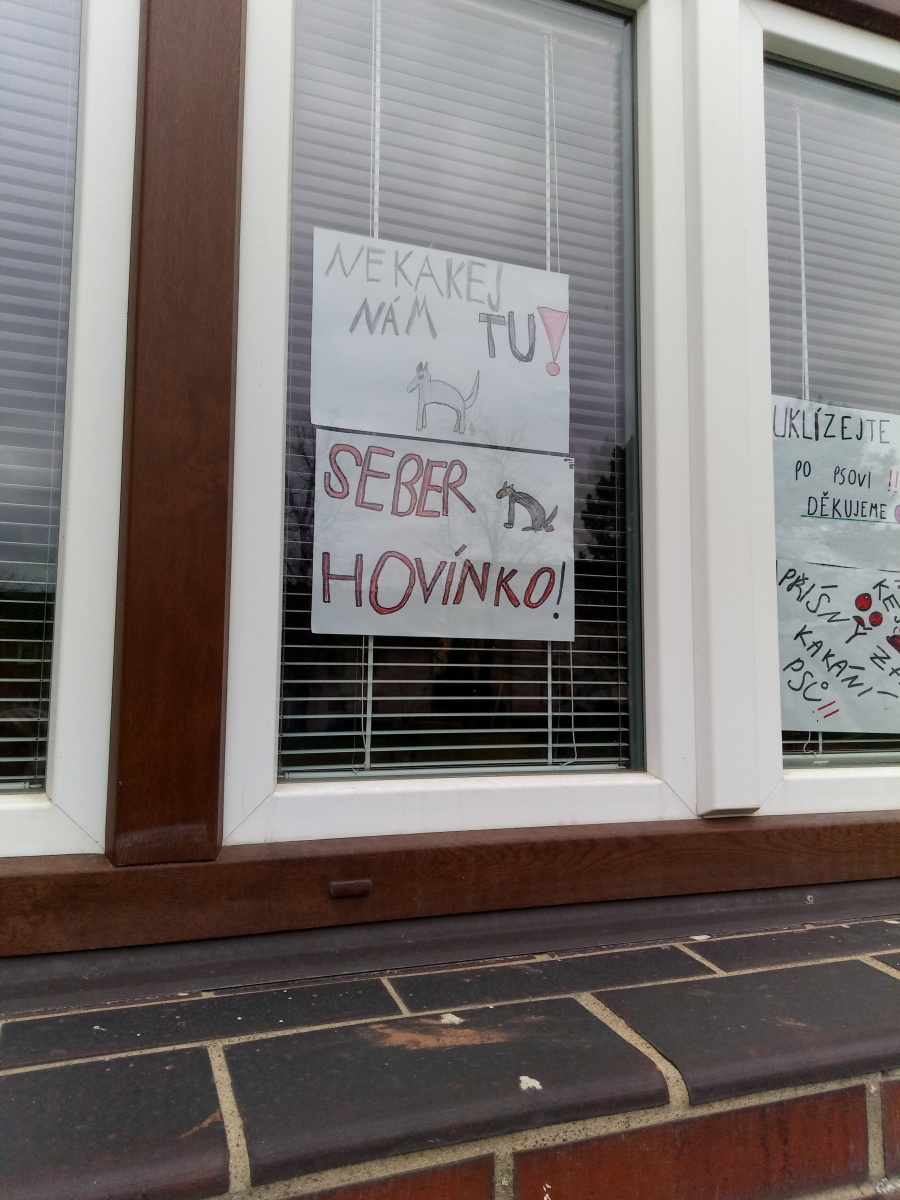 NEKAKEJ
NÁM TU!
SEBER
HOVÍNKO!
UKLÍZEJTE
PO PSOVI !!
DĚKUJEME
PŘÍSNÝ
KAKÁNÍ
PSŮ!!